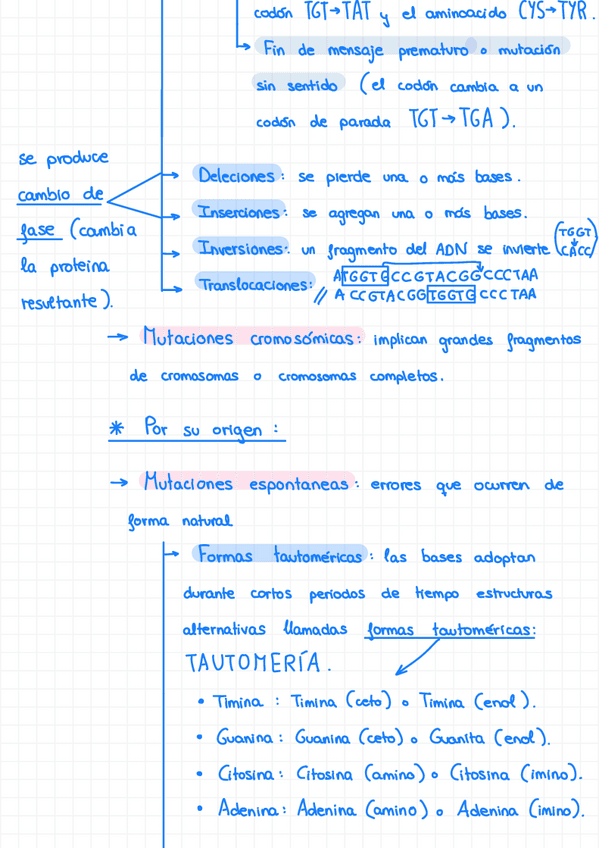 codón TGT→TAT y el aminoacido CYS→TYR.
Fin de mensaje prematuro o mutación
sin sentido (el codón cambia a un
codón de parada TGT→TGA).
se produce
cambio de
fase (cambia
la proteina
resultante).
→ Deleciones: se pierde una o más bases.
→ Inserciones: se agregan una o más bases.
→ Inversiones: un fragmento del ADN se invierte (TGGT
CACC)
→ Translocaciones: ATGGTGCCGTACGGCCCTAA
// ACCGTACGGTGGTGCCCTAA
→ Mutaciones cromosómicas: implican grandes fragmentos
de cromosomas o cromosomas completos.
* Por su origen:
→ Mutaciones espontaneas: errores que ocurren de
forma natural
→ Formas tautoméricas: las bases adoptan
durante cortos periodos de tiempo estructuras
alternativas llamadas formas tautoméricas:
TAUTOMERÍA.
• Timina: Timina (ceto) o Timina (enol).
• Guanina: Guanina (ceto) o Guanita (enol).
• Citosina: Citosina (amino) o Citosina (imino).
• Adenina: Adenina (amino) o Adenina (imino).